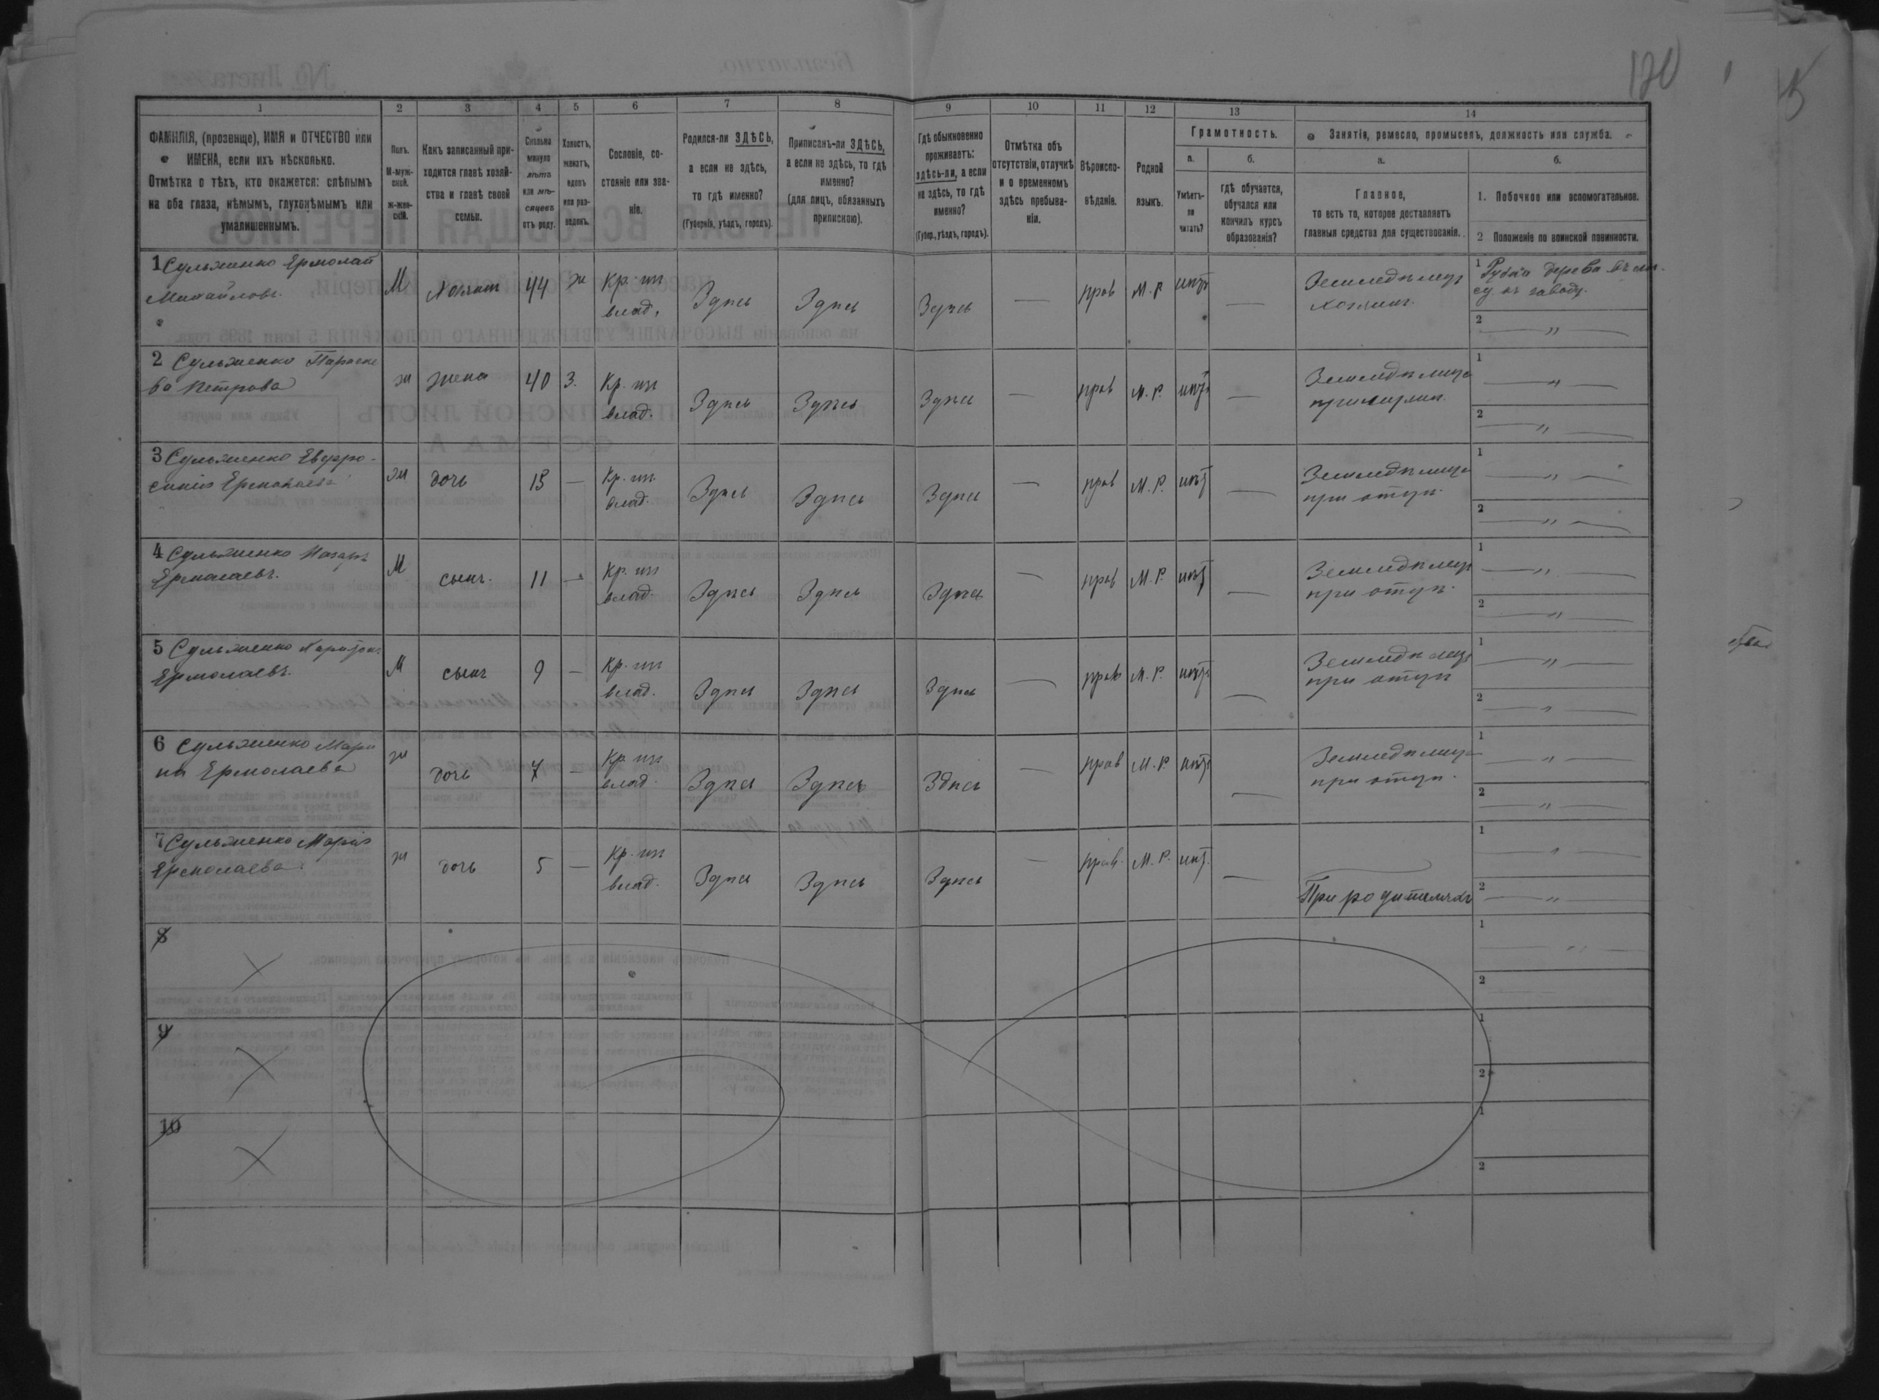 120
1 2 3 4 5 6 7 8 9 10 11 12 13 14
ФАМИЛІЯ, (прозвище), ИМЯ и ОТЧЕСТВО или
ИМЕНА, если ихъ нѣсколько.
Отмѣтка о тѣхъ, кто окажется: слѣпымъ
на оба глаза, нѣмымъ, глухонѣмымъ или
умалишеннымъ.
Полъ.
М-муж-
ской.
ж-жен-
скій.
Какъ записанный при-
ходится главѣ хозяй-
ства и главѣ своей
семьи.
Сколько
минуло
лѣтъ
или мѣ-
сяцевъ
отъ роду.
Холостъ,
женатъ,
вдовъ
или раз-
веденъ.
Сословіе, со-
стояніе или зва-
ніе.
Родился-ли ЗДѢСЬ,
а если не здѣсь,
то гдѣ именно?
(Губернія, уѣздъ, городъ).
Приписанъ-ли ЗДѢСЬ,
а если не здѣсь, то гдѣ
именно?
(для лицъ, обязанныхъ
припискою).
Гдѣ обыкновенно
проживаетъ:
здѣсь-ли, а если
не здѣсь, то гдѣ
именно?
(Губер., уѣздъ, городъ).
Отмѣтка объ
отсутствіи, отлучкѣ
и о временномъ
здѣсь пребыва-
ніи.
Вѣроиспо-
вѣданіе.
Родной
языкъ.
Грамотность.
а.
Умѣетъ-
ли
читать?
б.
гдѣ обучается,
обучался или
кончилъ курсъ
образованія?
Занятія, ремесло, промыселъ, должность или служба.
а.
Главное,
то есть то, которое доставляетъ
главныя средства для существованія.
б.
1. Побочное или вспомогательное.
2 Положеніе по воинской повинности.
1 Сульженко Ермолай
Михайловъ М 44 ж Кр. из влад. Здѣсь Здѣсь Здѣсь — прав М. Р. нѣтъ — Земледѣлецъ
хозяинъ 1 Рубка дерева
2 — „ —
2 Сульженко Параске
ва Петрова ж жена 40 З. Кр. из влад. Здѣсь Здѣсь Здѣсь — прав М. Р. нѣтъ — 1 — „ —
2 — „ —
3 Сульженко Евфро-
синія Ермолаева ж дочь 15 — Кр. из влад. Здѣсь Здѣсь Здѣсь — прав М. Р. нѣтъ — при отцѣ. 1 — „ —
2 — „ —
4 Сульженко
Ермолаевъ. М сынъ. 11 — Кр. из влад. Здѣсь Здѣсь Здѣсь — прав М. Р. нѣтъ — Земледѣлецъ
при отцѣ. 1 — „ —
2 — „ —
5 Сульженко
Ермолаевъ. М сынъ 9 — Кр. из влад. Здѣсь Здѣсь Здѣсь — прав М. Р. нѣтъ — Земледѣлецъ
при отцѣ 1 — „ —
2 — „ —
6 Сульженко Мари
на Ермолаева ж дочь 7 — Кр. из влад. Здѣсь Здѣсь Здѣсь — прав М. Р. нѣтъ — при отцѣ. 1 — „ —
2 — „ —
7 Сульженко Марія
Ермолаева ж дочь 5 — Кр. из влад. Здѣсь Здѣсь Здѣсь — прав. М. Р. нѣт. — При родителяхъ 1 „
2 — „ —
8 1
2
9 1
2
10 1
2